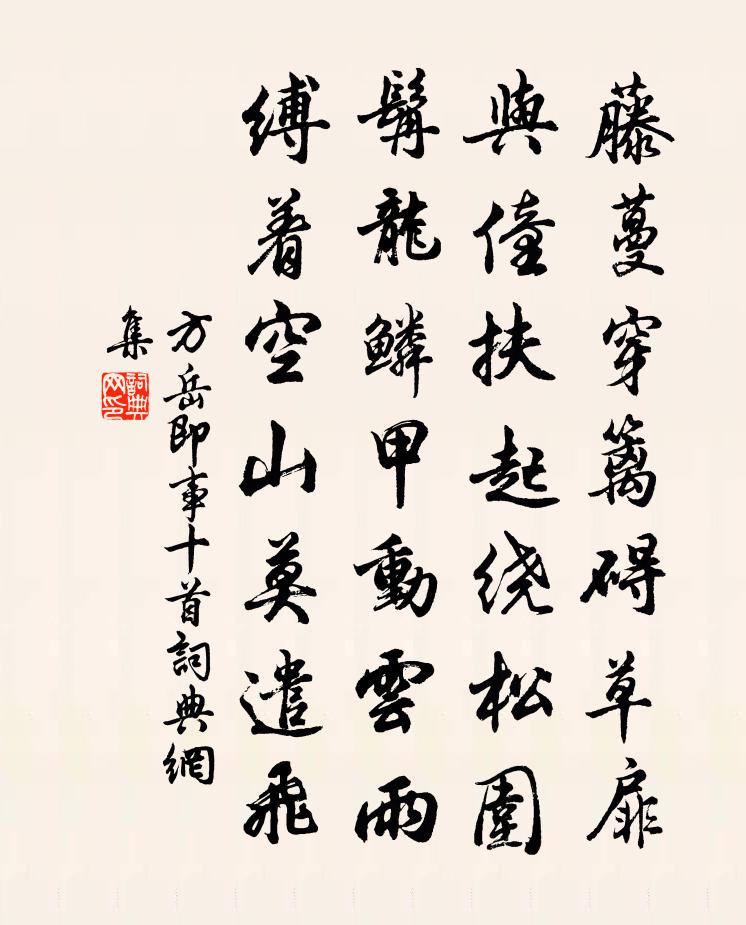 藤蔓穿篱碍草扉
與僮扶起绕松圍
髯龍鳞甲動雲雨
缚着空山莫遣飛
方岳即事十首詞典網
集
詞典网印